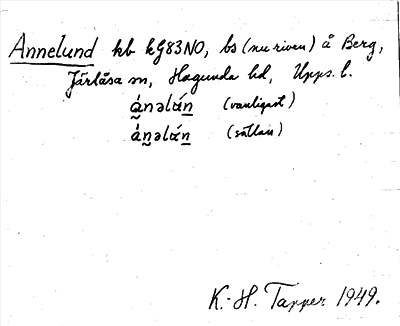 Annelund kb kG83NO, bs (nu riven) å Berg,
Järlåsa sn, Hagunda hd, Upps. l.
ánəlán (vanligast)
ánəlán (sällan)
K.-H. Tapper 1949.